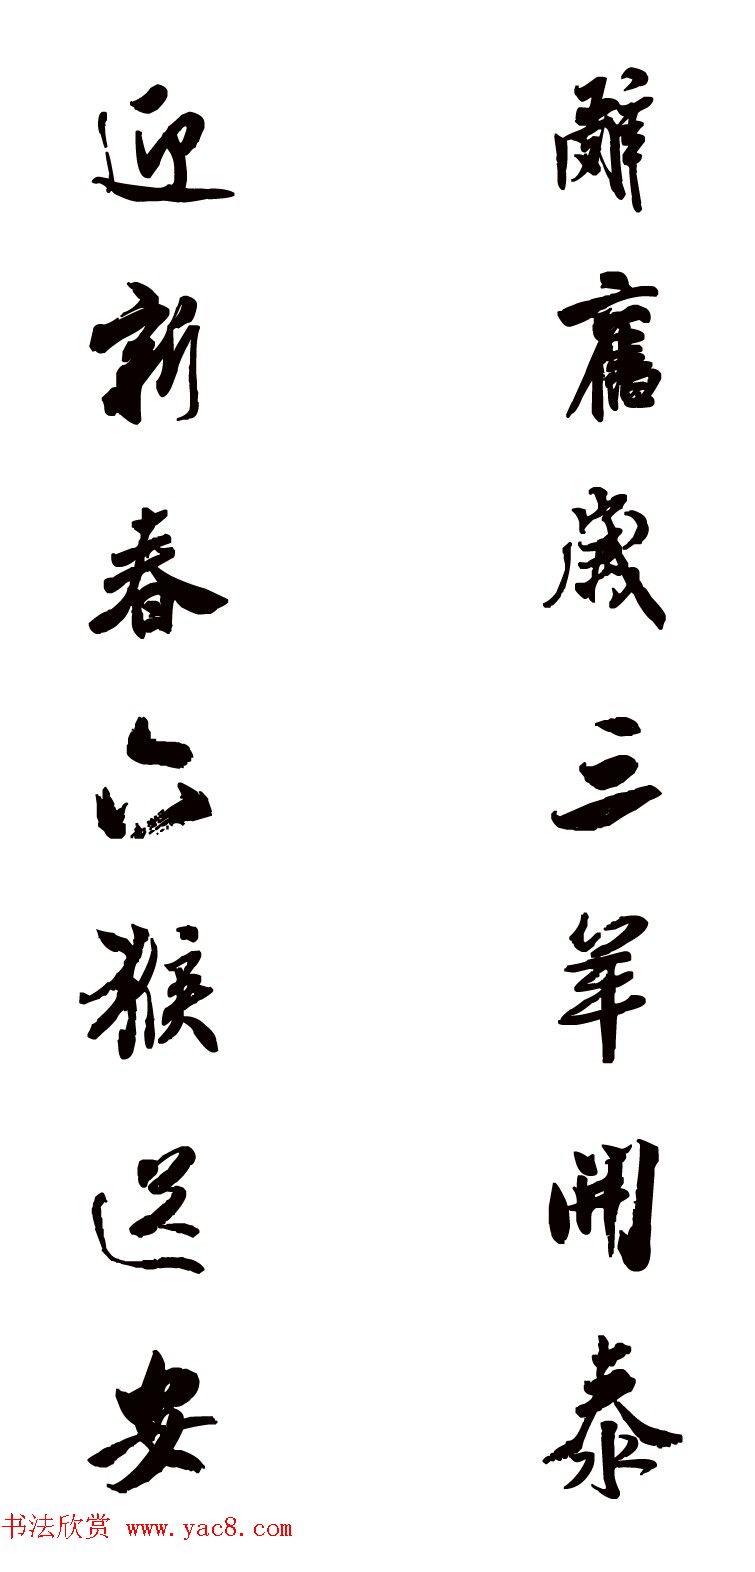 辭舊歲三羊開泰
迎新春六猴送安
书法欣赏 www.yac8.com